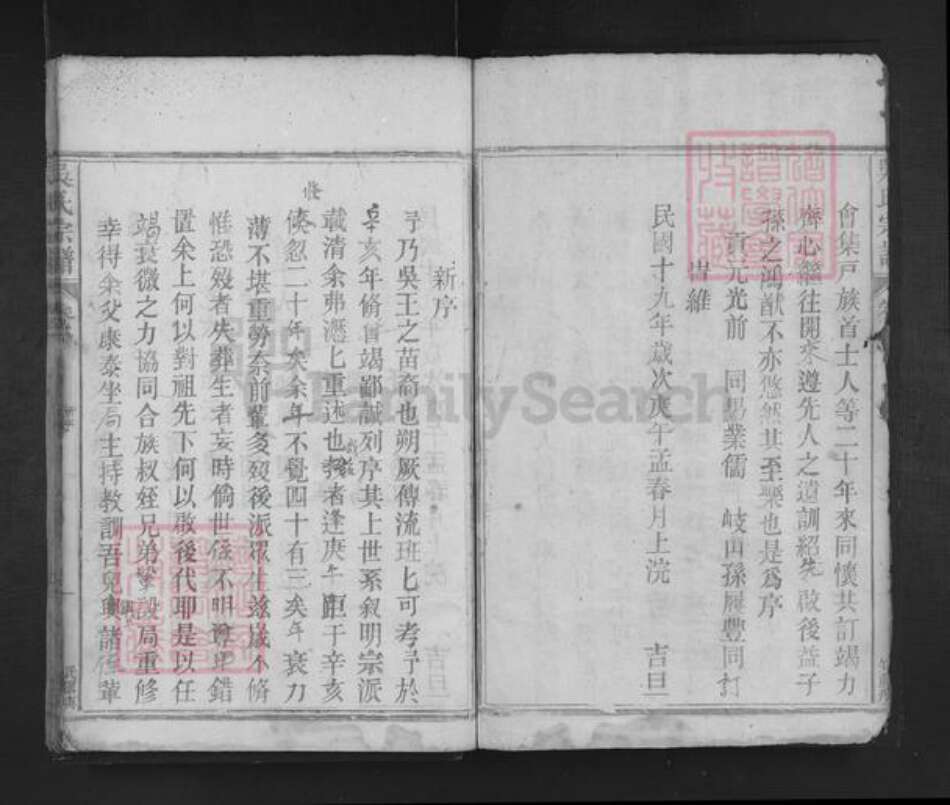 會集戸族首士人等二十年來同懷共訂竭力
齊心繼往開來遵先人之遺訓紹先啟後益子
孫之鴻猷不亦悠然其至樂也是爲序
貢元光前 同男業儒 岐山孫履豐同訂
峕維
民國十九年歲次庚午孟春月上浣 吉旦
吳氏宗譜
新序
予乃吳王之苗裔也朔厥傳流班匕可考予於
辛亥年脩曾竭鄙誠列序其上世系叙明宗派
載清余弗慿匕重述也茲者逢庚午距于辛亥
倏忽二十年矣余年不覺四十有三矣年衰力
薄不堪重勞奈前輩多歿後派眾生兹歲不脩
惟恐歿者失葬生者妄時倘世系不明尊卑錯
置余上何以對祖先下何以啟後代耶是以任
竭衰微之力協同合族叔姪兄弟等設局重修
幸得余父康泰坐局主持教訓吾兒與諸侄輩
吳氏宗譜
FamilySearch